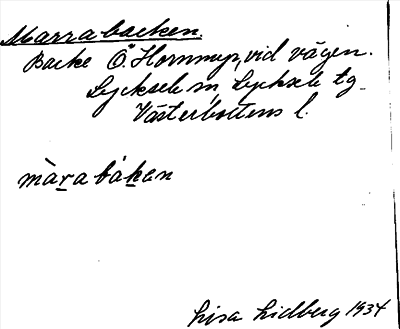 Marrabacken.
Backe Ö. Hornmyr, vid vägen.
Lycksele sn, Lycksele tg.
Västerbottens l.
màrabákan
Lisa Lidberg 1934